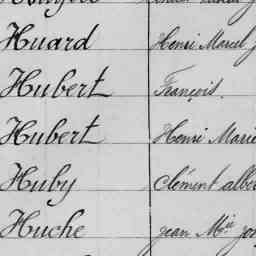 Huard Henri Marcel
Hubert François.
Hubert Henri Marie
Huby Clément
Huche jean Mie